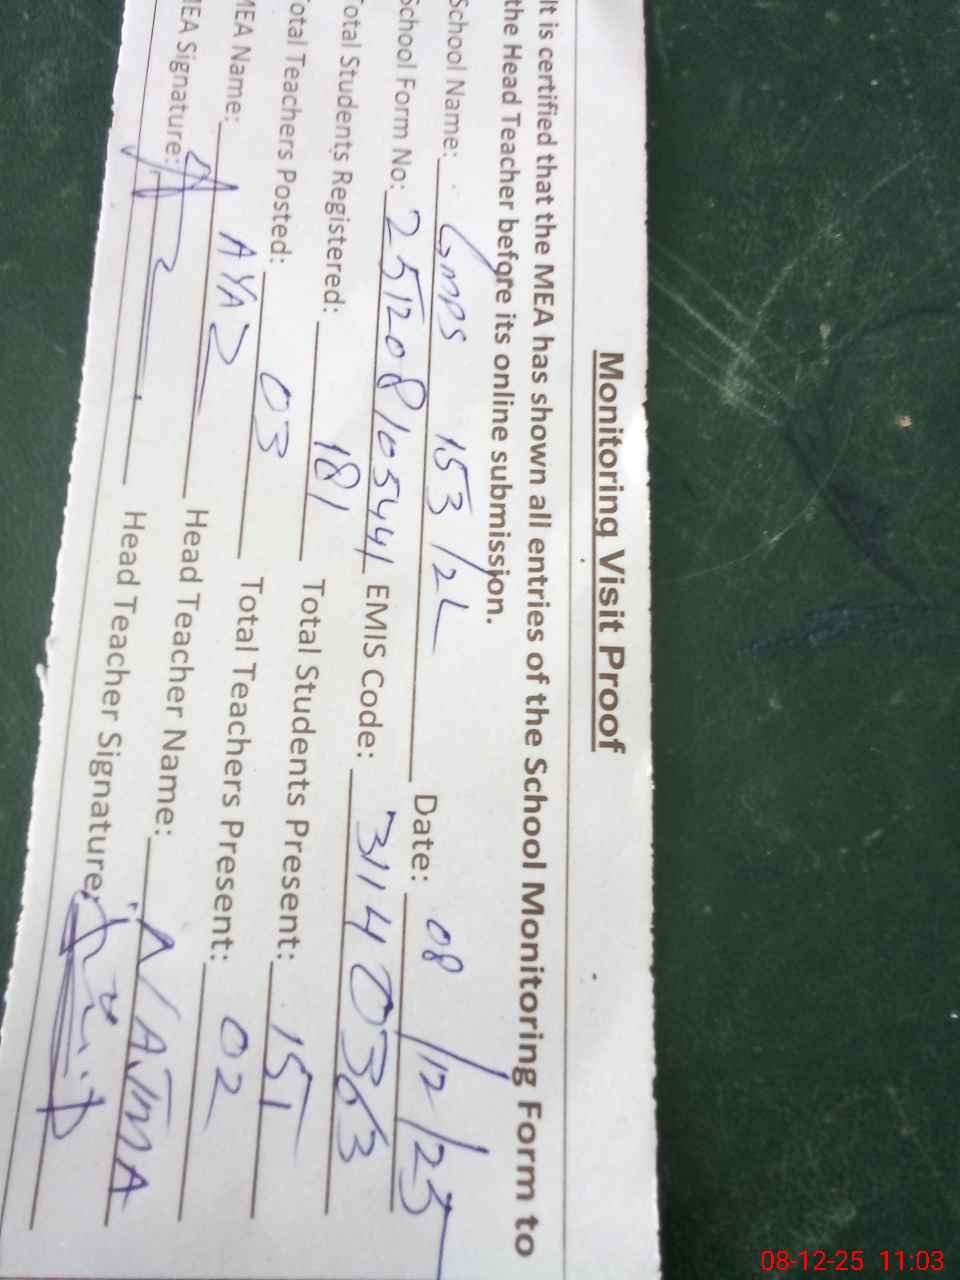 Monitoring Visit Proof
It is certified that the MEA has shown all entries of the School Monitoring Form to
the Head Teacher before its online submission.
School Name: Gmps 153/2L Date: 08/12/25
School Form No: 251208105441 EMIS Code: 31140363
Total Students Registered: 181 Total Students Present: 151
Total Teachers Posted: 03 Total Teachers Present: 02
MEA Name: AYAZ Head Teacher Name: NAJMA
MEA Signature: Head Teacher Signature:
08-12-25 11:03